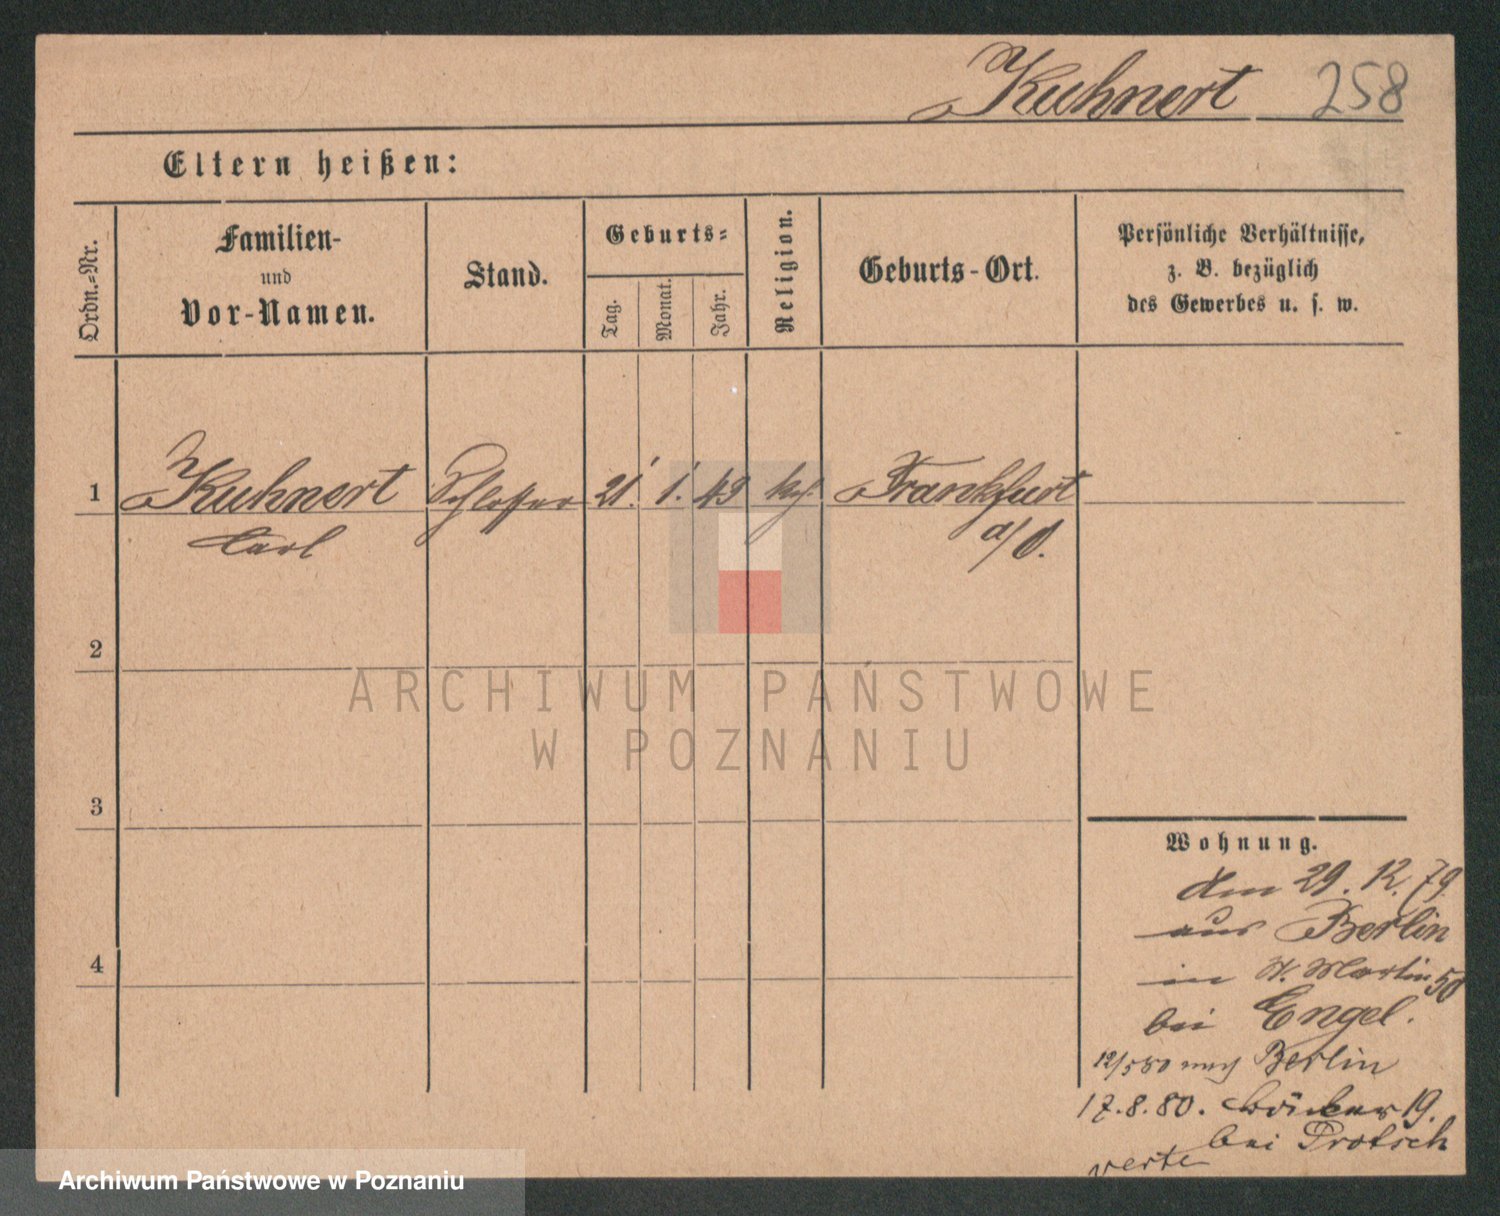 Kuhnert 258
Eltern heißen:
Ordn.-Nr.
Familien-
und
Vor-Namen.
Stand.
Geburts-
Tag.
Monat.
Jahr.
Religion.
Geburts-Ort.
Persönliche Verhältnisse,
z. B. bezüglich
des Gewerbes u. s. w.
1 Kuhnert Schlosser 21. 1. 43 Frankfurt
Carl a/O.
2
3
4
Wohnung.
den 29. 12. 79.
aus Berlin
in St. Martin 50
bei Engel.
12/5 80 nach Berlin
17. 8. 80. 19.
bei Protsch
verte
ARCHIWUM PAŃSTWOWE
W POZNANIU
Archiwum Państwowe w Poznaniu